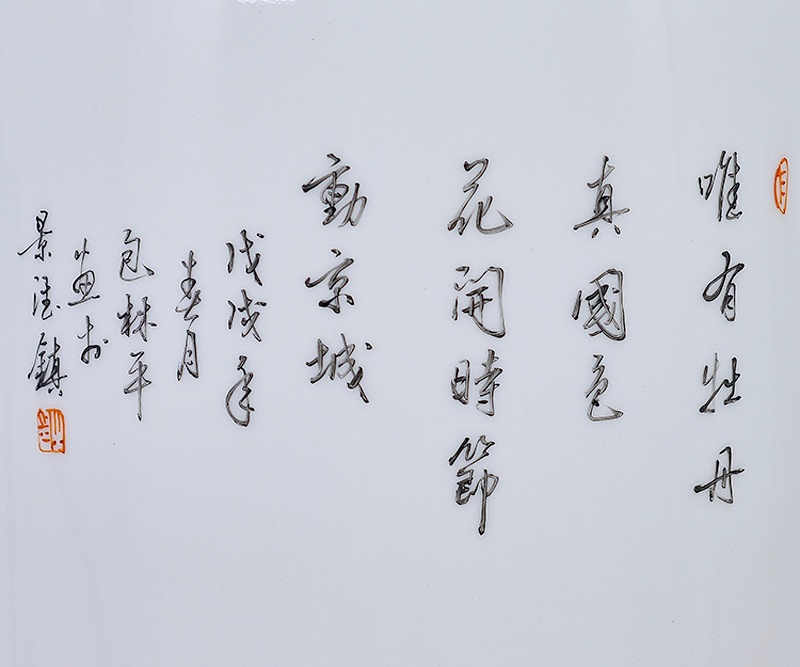 唯有牡丹
真國色
花開時節
動京城
戊戌年
春月
包林平
画於
景德鎮